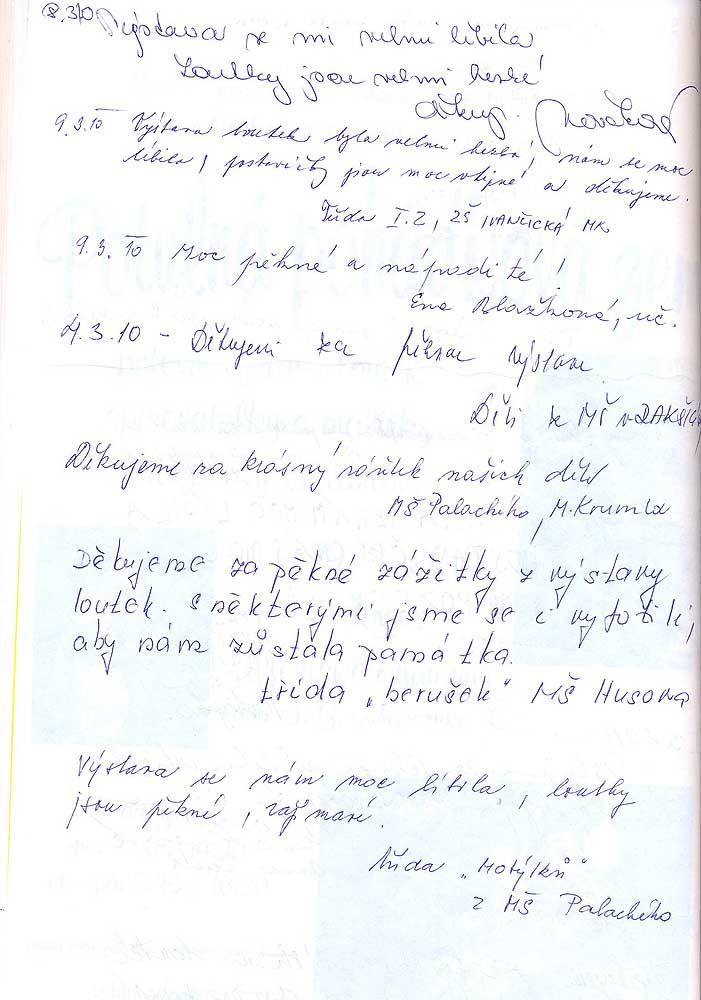 8.3.10 Výstava se mi velmi líbila
Loutky jsou velmi hezké
Děkuji. Nováková
9.3.10 Výstava loutek byla velmi hezká, nám se moc
líbila, postavičky jsou moc vtipné a děkujeme.
Třída I.Z, ZŠ IVANČICKÁ MK
9.3.10 Moc pěkné a nápadité!
Eva Blažková, uč.
4.3.10 - Děkujeme za pěknou výstavu
Děti z MŠ v RAKŠICÍCH
Děkujeme za krásný zážitek našich dětí
MŠ Palachého, M. Krumlov
Děkujeme za pěkné zážitky z výstavy
loutek. S některými jsme se i vyfotili,
aby nám zůstala památka.
třída „berušek“ MŠ Husova
Výstava se nám moc líbila, loutky
jsou pěkné, zajímavé.
třída „Motýlků“
z MŠ Palachého